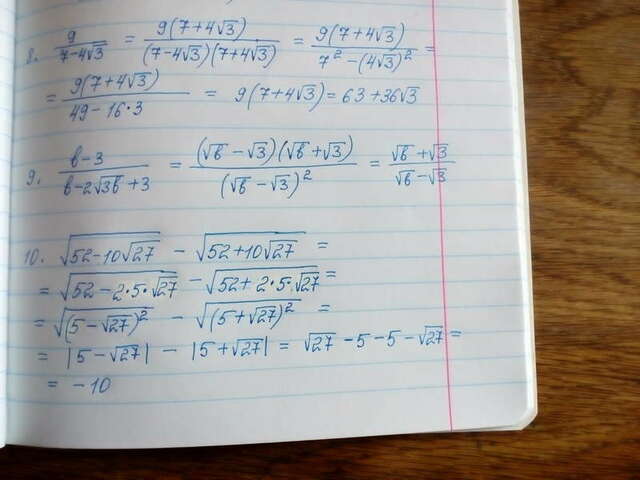 8. 9/(7-4√3) = 9(7+4√3)/((7-4√3)(7+4√3)) = 9(7+4√3)/(7²-(4√3)²) =
= 9(7+4√3)/(49-16·3) = 9(7+4√3) = 63+36√3
9. (b-3)/(b-2√(3b)+3) = (√b-√3)(√b+√3)/(√b-√3)² = (√b+√3)/(√b-√3)
10. √(52-10√27) - √(52+10√27) =
= √(52-2·5·√27) - √(52+2·5·√27) =
= √((5-√27)²) - √((5+√27)²) =
= |5-√27| - |5+√27| = √27-5-5-√27 =
= -10